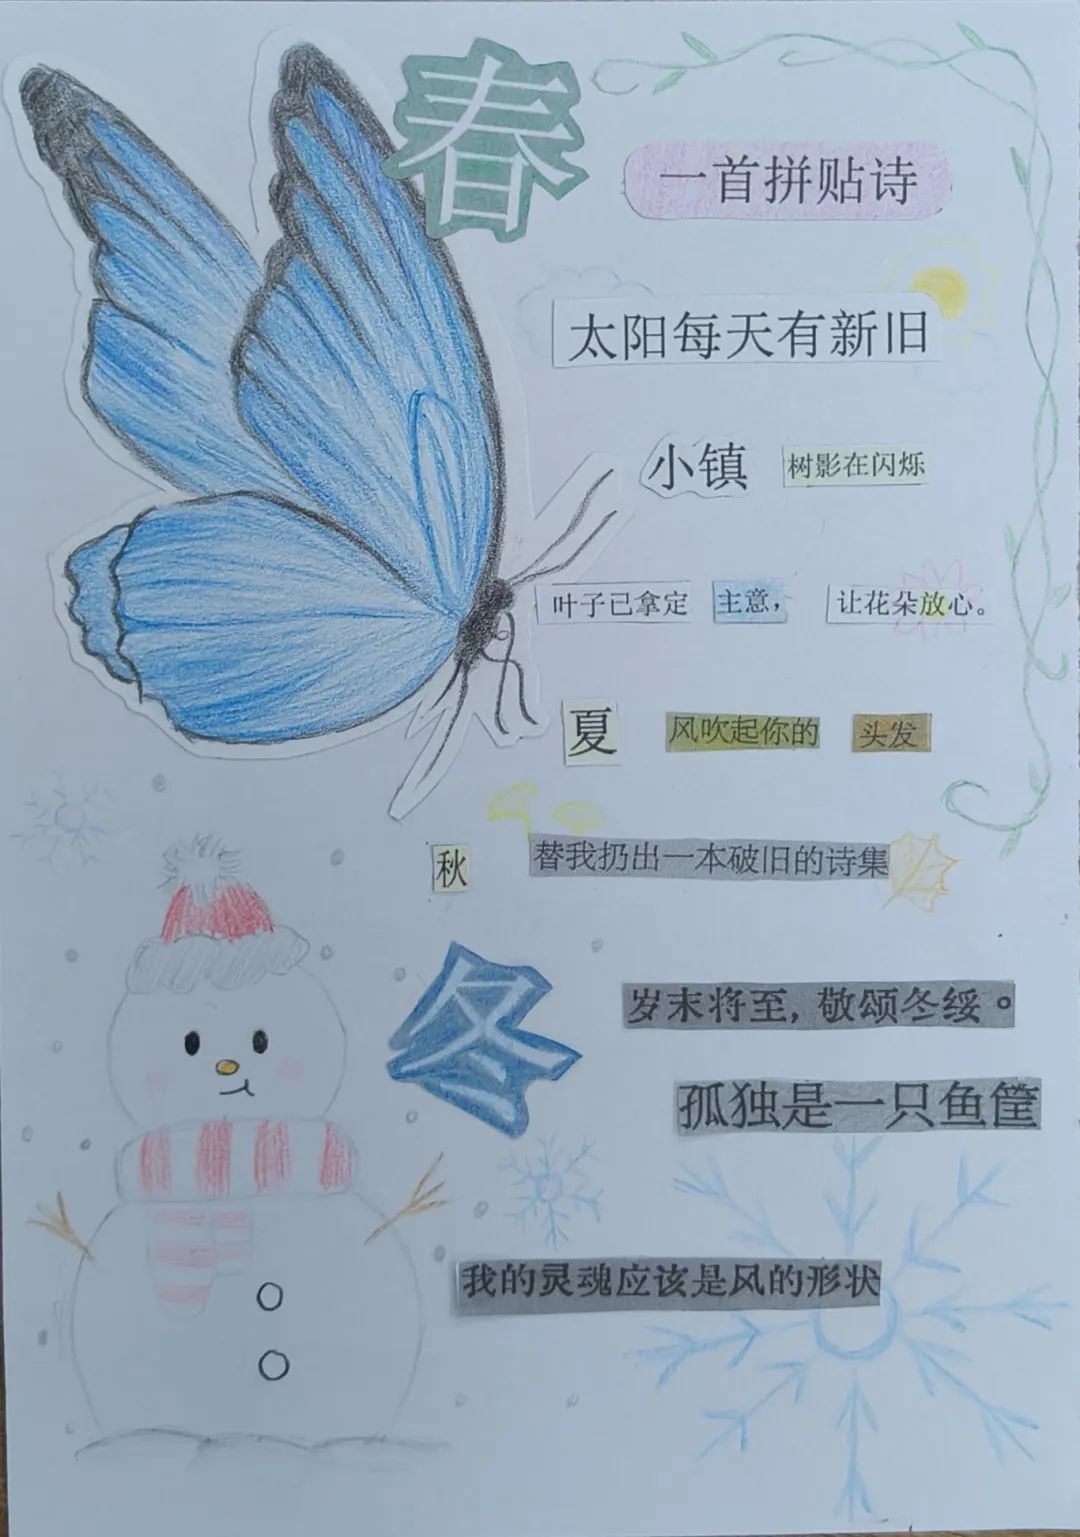 春
一首拼贴诗
太阳每天有新旧
小镇 树影在闪烁
叶子已拿定 主意， 让花朵放心。
夏 风吹起你的 头发
秋 替我扔出一本破旧的诗集
冬
岁末将至，敬颂冬绥。
孤独是一只鱼筐
我的灵魂应该是风的形状